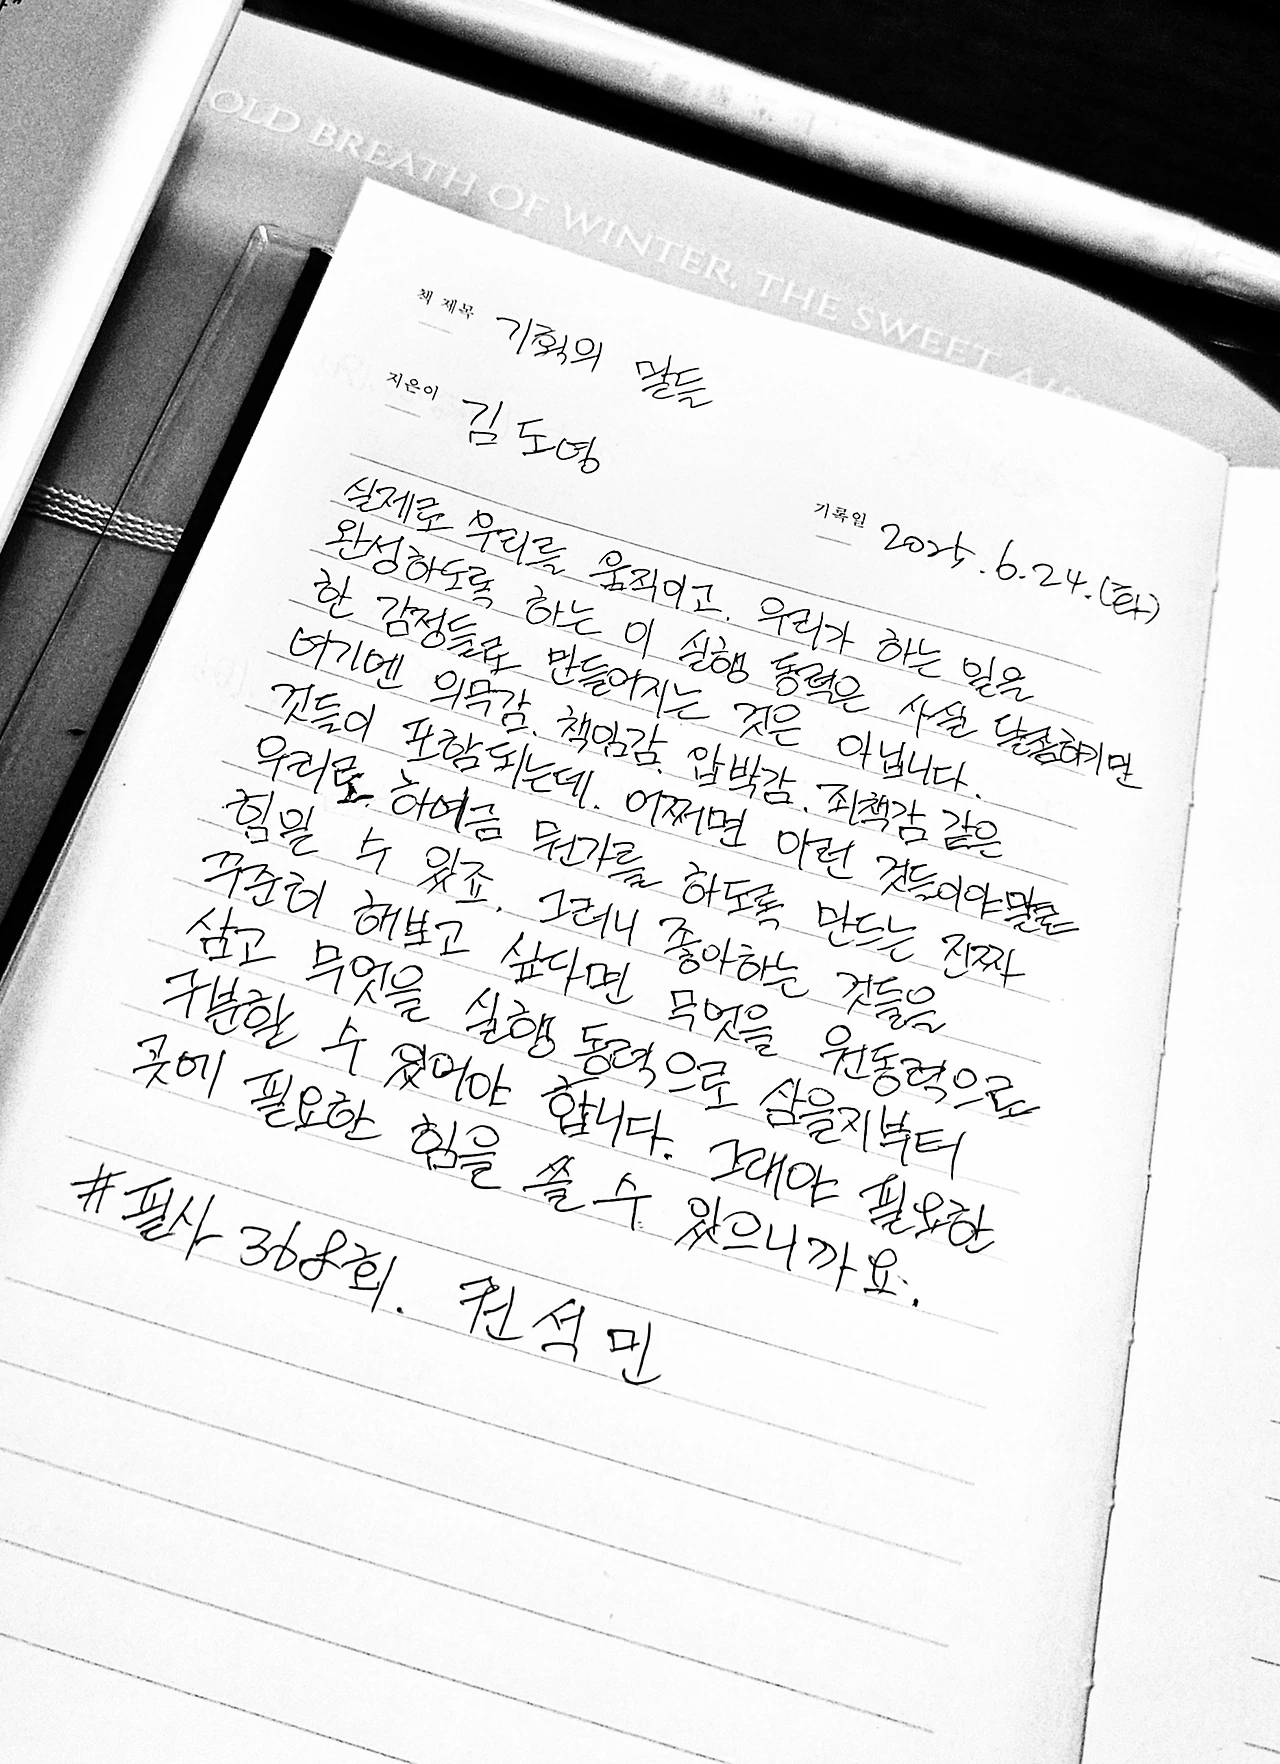 OLD BREATH OF WINTER, THE SWEET
책 제목 기획의 말들
지은이 김도영
기록일 2025.6.24.(화)
실제로 우리를 움직이고, 우리가 하는 일을
완성하도록 하는 이 실행 동력은 사실 달콤하기만
한 감정들로 만들어지는 것은 아닙니다.
여기엔 의무감, 책임감, 압박감, 죄책감 같은
것들이 포함되는데, 어쩌면 이런 것들이야말로
우리로 하여금 뭔가를 하도록 만드는 진짜
힘일 수 있죠. 그러니 좋아하는 것들을
꾸준히 해보고 싶다면 무엇을 원동력으로
삼고 무엇을 실행 동력으로 삼을지부터
구분할 수 있어야 합니다. 그래야 필요한
곳에 필요한 힘을 쓸 수 있으니까요.
#필사 368회. 권석민